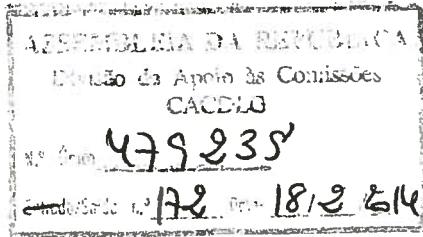 ASSEMBLEIA DA REPÚBLICA
Divisão de Apoio às Comissões
CACDLG
N.º Único 479235
Entrada/Saída n.º 172 Data 18/2/2014